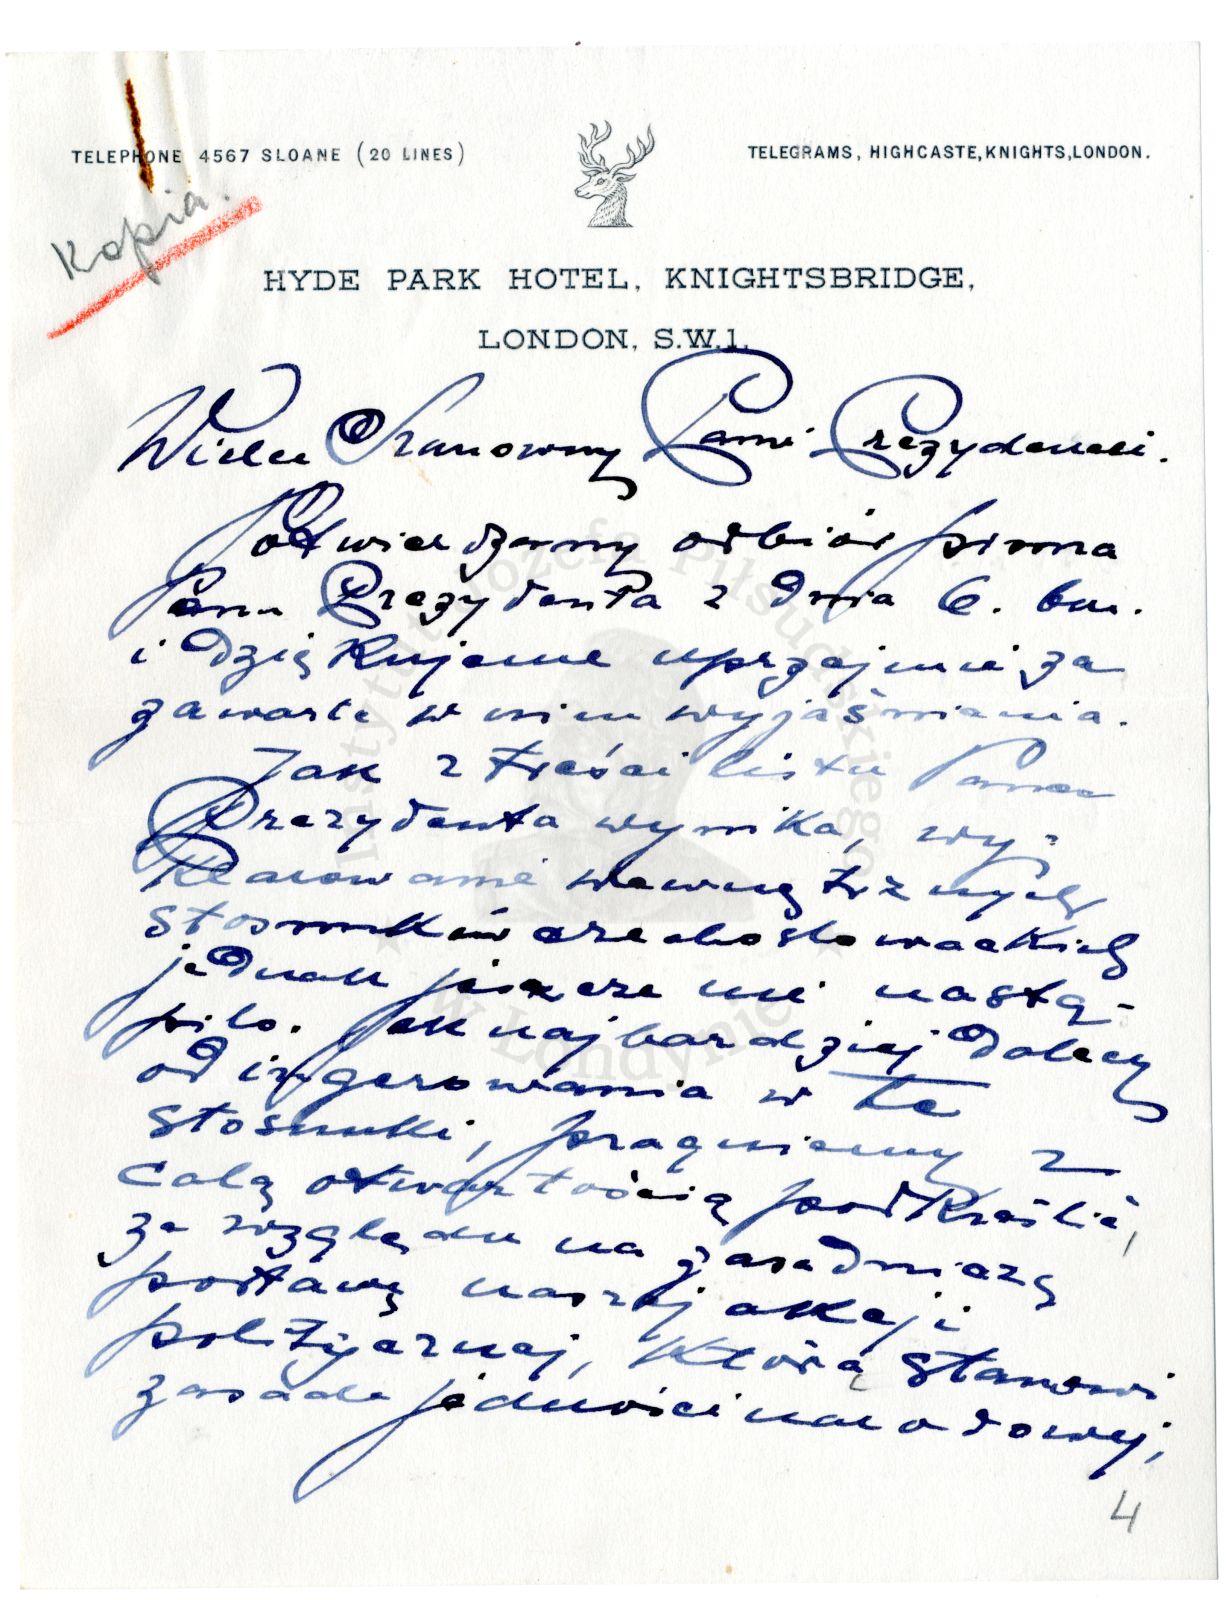 TELEPHONE 4567 SLOANE (20 LINES)
TELEGRAMS, HIGHCASTE, KNIGHTS, LONDON.
Kopia.
HYDE PARK HOTEL, KNIGHTSBRIDGE,
LONDON, S.W.1.
Wielce Szanowny Panie Prezydencie.
Potwierdzamy odbiór pisma
Pana Prezydenta z dnia 6. bm.
i dziękujemy uprzejmie za
zawarte w nim wyjaśnienia.
Jak z treści listu Pana
Prezydenta wynika, wy-
klarowanie wewnętrznych
stosunków czechosłowackich
jednak jeszcze nie nastą-
piło. Jak najbardziej dalecy
od ingerowania w te
stosunki, pragniemy z
całą otwartością podkreślić,
ze względu na zasadniczą
postawę naszej akcji
politycznej, którą stanowi
zasada jedności narodowej,
4
Instytut Józefa Piłsudskiego
w Londynie